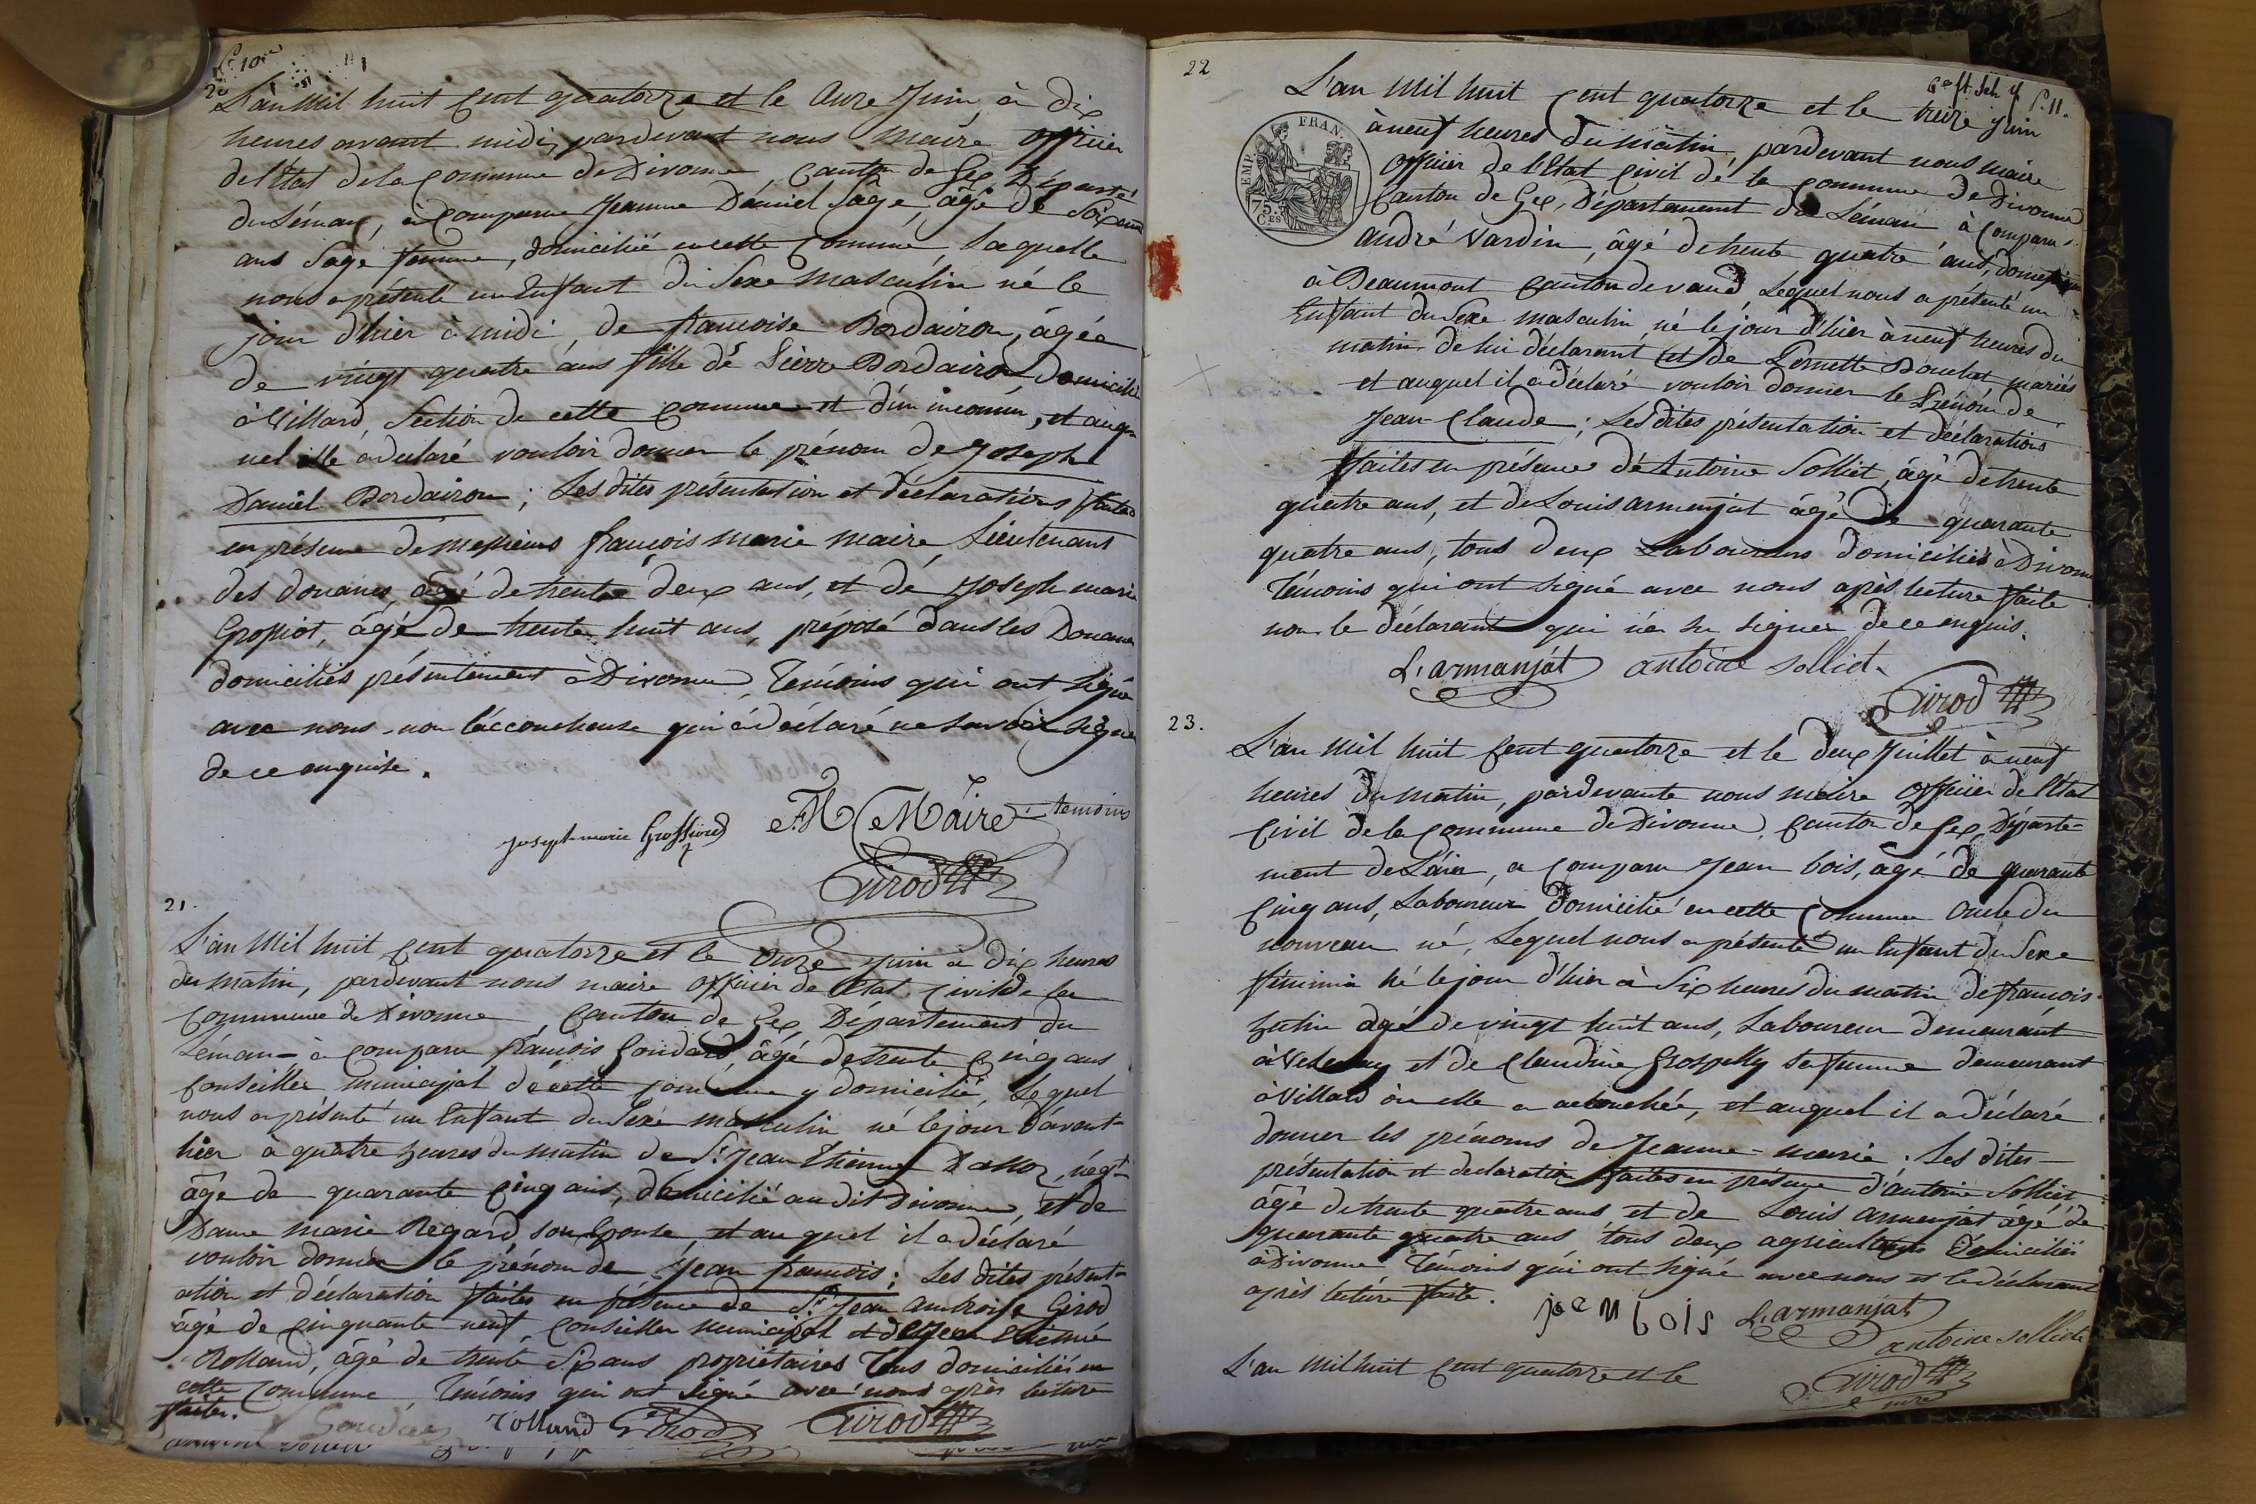 20
L'an Mil huit Cent quatorze et le Onze Juin à dix
heures avant midi, pardevant nous Maire officier
de l'État de la Commune de Divonne, Canton de Gex Départ.t
du Léman, à Comparu Jeanne Daniel Sage, âgé de Soixante
ans Sage femme, domiciliée en cette Commune, Laquelle
nous a présenté un Enfant du Sexe Masculin né le
jour d'hier à midi, de francoise Bordairon, âgée
de vingt quatre ans fille de Pierre Bordairon Domicilié
à Villard Section de cette Commune et d'un inconnu, et auq-
uel elle a déclaré vouloir donner le prénom de Joseph
Daniel Bordairon ; Les dites présentation et déclarations faites
en présence de Messieurs françois marie Maire, Lieutenant
des douanes, agé de trente deux ans, et de Joseph marie
Grossiot, âgé de trente huit ans, préposé dans les Douanes
domiciliés présentement à Divonne, Temoins qui ont signé
avec nous, non l'accoucheuse qui a déclaré ne savoir signer
de ce enquise.
F. M. Maire temoins
joseph marie Grossiord
Girod
21.
L'an Mil huit Cent quatorze et le Onze Juin à dix heures
du matin, pardevant nous maire officier de l'État Civil de la
Commune de Divonne Canton de Gex, Département du
Léman à comparu françois Goudard, âgé de trente Cinq ans
Conseiller municipal de cette Commune y domicilié, Lequel
nous a présenté un Enfant du Sexe masculin né le jour d'avant-
hier à quatre heures du matin de S.r Jean Etienne négt.
âgé de quarante Cinq ans, domicilié au dit Divonne, et de
Dame marie Regard, son Epouse, et au quel il a déclaré
vouloir donner le prénom de Jean francois ; Les dites présent-
ation et déclaration faites en présence de S.r Jean ambroise Girod
âgé de Cinquante neuf, Conseiller municipal et de Jean Etienne
Rolland, âgé de trente Six ans propriétaires Tous domiciliés en
cette Commune, Temoins qui ont signé avec nous après lecture
faite.
Goudard rolland Girod Girod
22
f. 11.
L'an Mil huit Cent quatorze et le treize juin
à neuf heures du matin, pardevant nous maire
officier de l'Etat Civil de la Commune de Divonne
Canton de Gex, Département du Léman à Comparu
FRAN.
EMP.
75.
CES
andré Vardin, âgé de trente quatre ans,
à Beaumont Canton de vaud, Lequel nous a présenté un
Enfant du Sexe masculin, né le jour d'hier à neuf heures du
matin de lui déclarant et de Pernette Bouchet mariés
et auquel il a déclaré vouloir donner le Prénom de
Jean Claude ; Les dites présentation et déclarations
faites en présence d'Antoine Solliet, âgé de trente
quatre ans, et de Louis armanjat âgé de quarante
quatre ans, tous deux Laboureurs domiciliés à Divonne
Témoins qui ont signé avec nous après lecture faite
non le déclarant qui n'a su signer de ce enquis.
L. armanjat antoine solliet.
Girod
23.
L'an Mil huit Cent quatorze et le deux Juillet à neuf
heures du matin, pardevante nous maire officier de l'État
Civil de la Commune de Divonne, Canton de Gex, Départe-
ment de L'ain, a Comparu Jean bois, âgé de quarante
Cinq ans, Laboureur domicilié en cette Commune Oncle du
nouveau né, Lequel nous a présenté un Enfant du Sexe
féminin né le jour d'hier à Six heures du matin de francois
agé de vingt huit ans, Laboureur demeurant
à Vesenay et de Claudine Grospelly sa femme demeurant
à Villard où elle a accouchée, et auquel il a déclaré
donner les prénoms de Jeanne-marie. Les dites
présentation et declaration faites en présence d'antoine Solliet
âgé de trente quatre ans et de Louis armanjat âgé de
quarante quatre ans tous deux agriculteurs domiciliés
à Divonne Témoins qui ont signé avec nous et le déclarant
après lecture faite.
jean bois L. armanjat
antoine solliet
L'an mil huit Cent quatorze et le
Girod